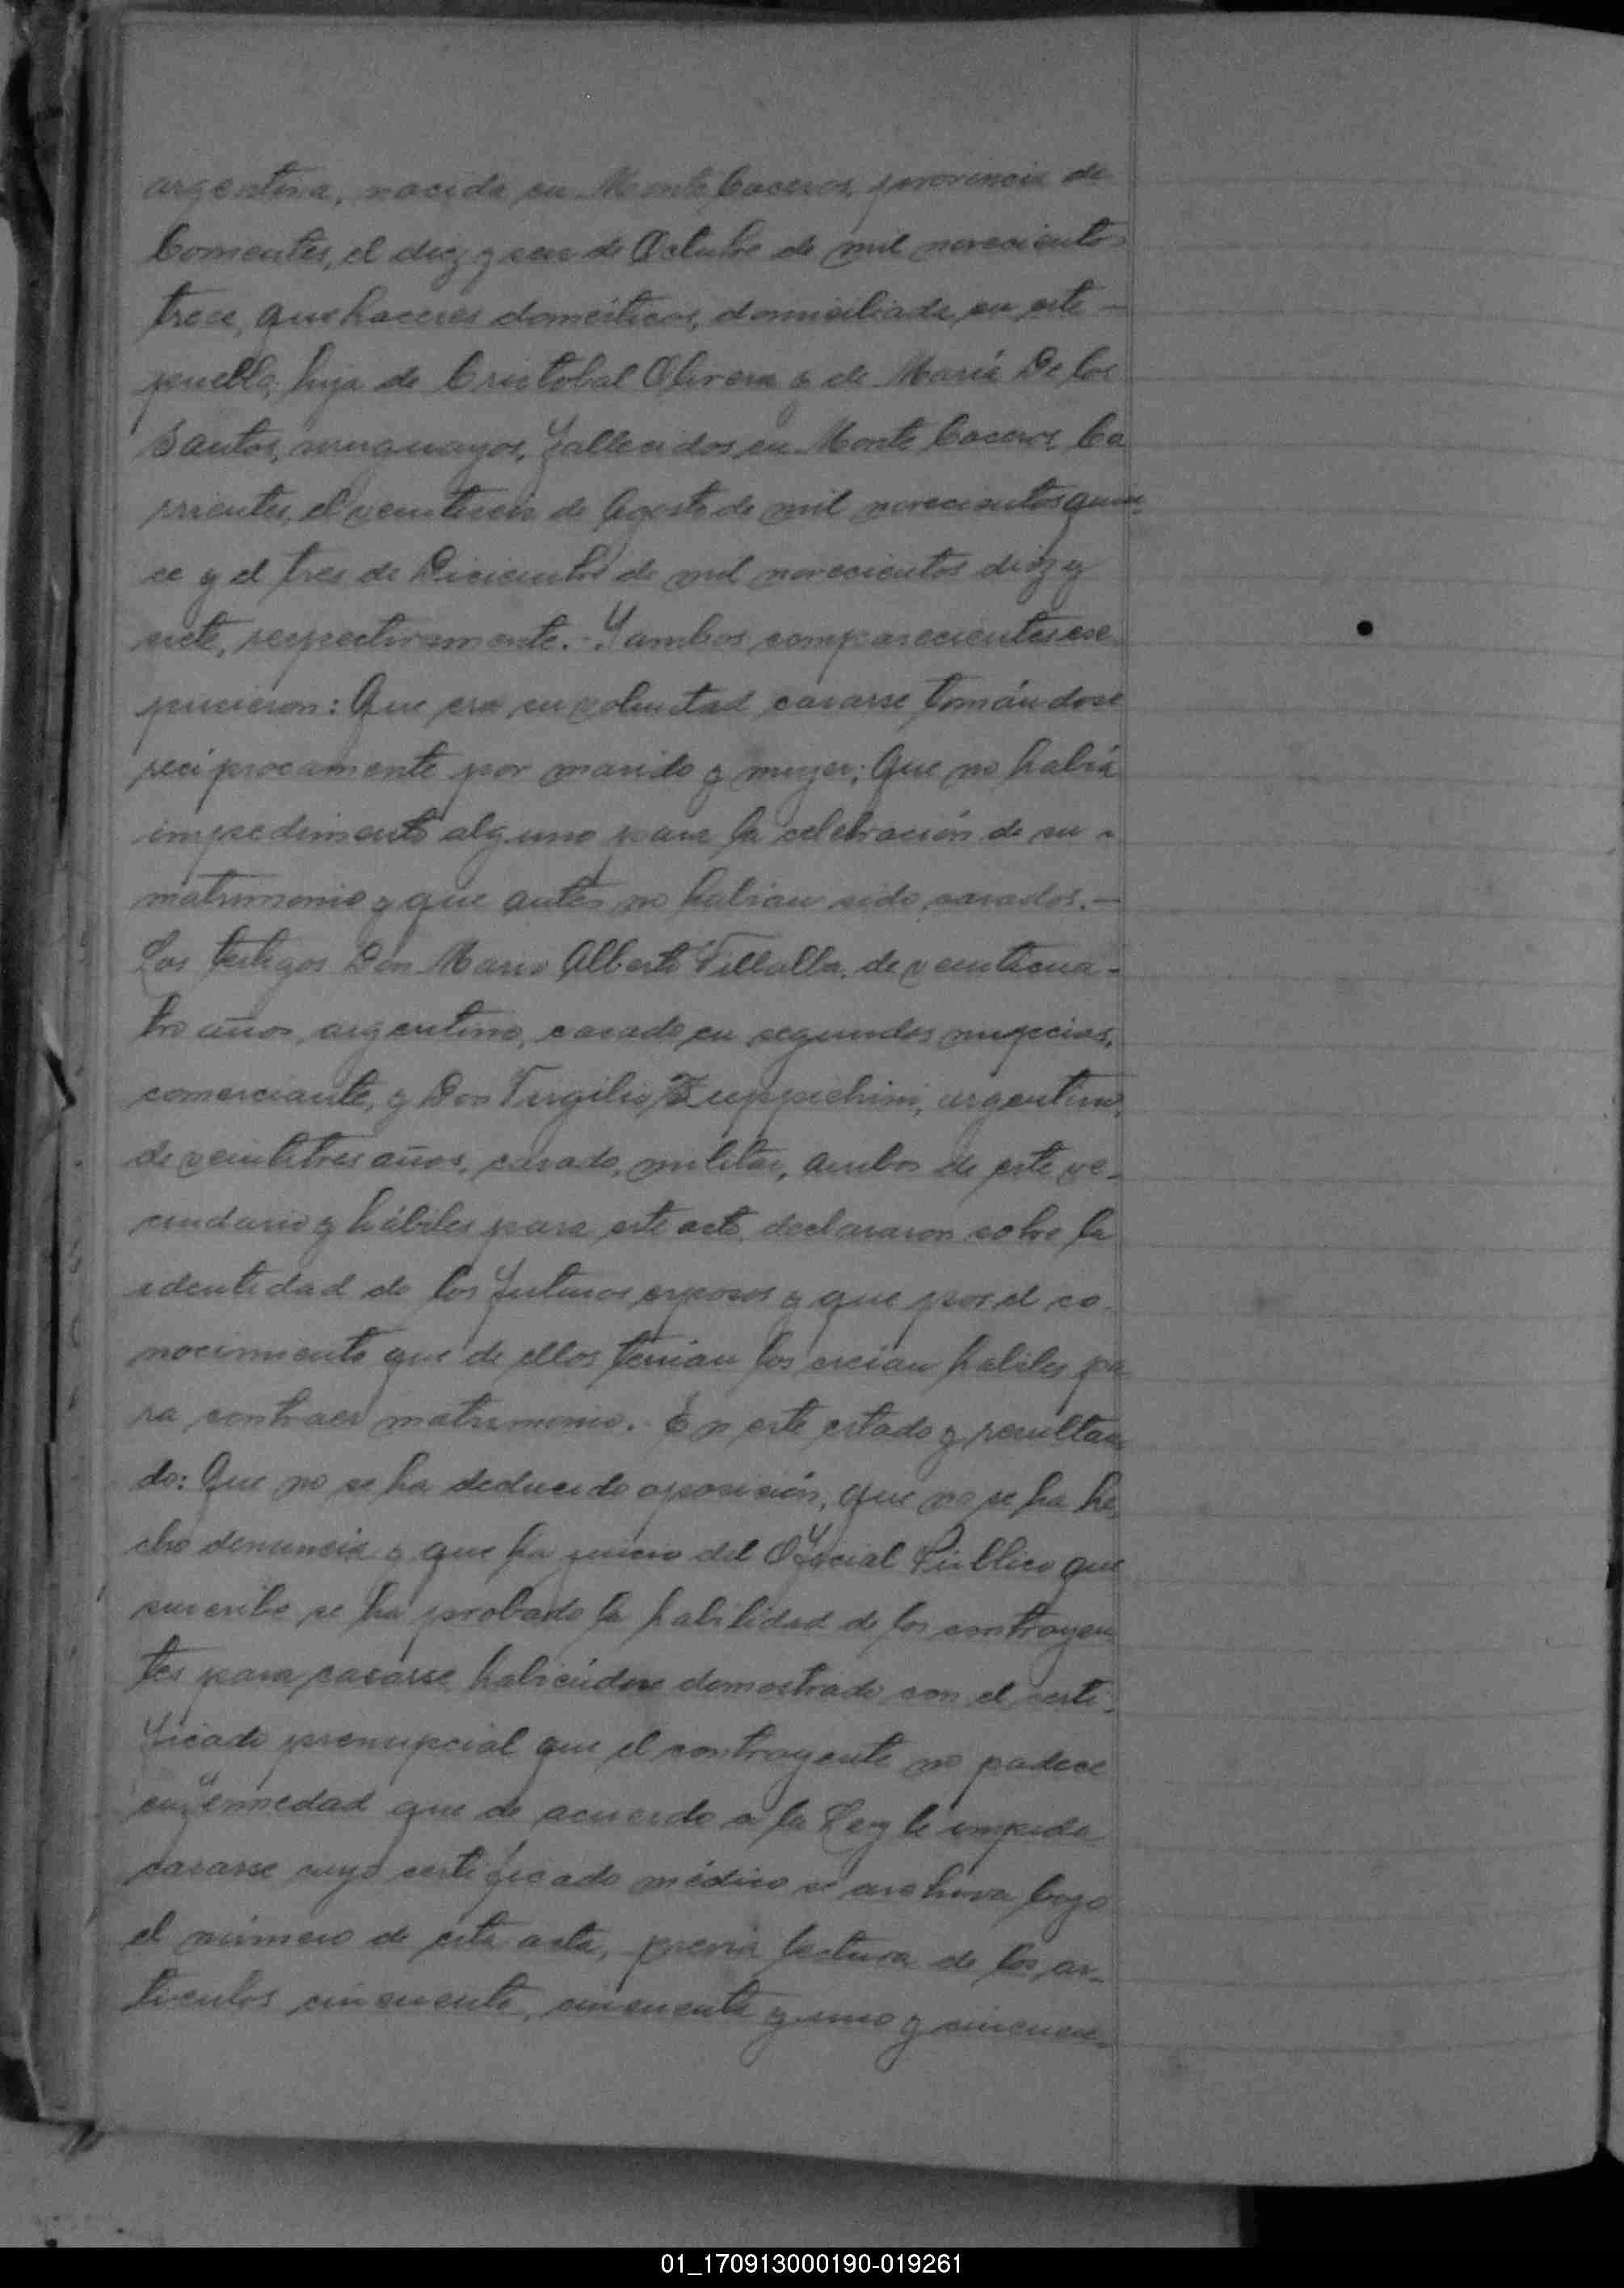 argentina, nacida en Monte Caseros, provincia de
Corrientes, el diez y seis de Octubre de mil novecientos
trece, quehaceres domésticos, domiciliada en este —
pueblo; hija de Cristobal Olivera y de María De los
Santos, uruguayos, fallecidos en Monte Caseros, Co
rrientes, el veinteseis de Agosto de mil novecientos quin
ce y el tres de Diciembre de mil novecientos diez y
siete, respectivamente.- Y ambos comparecientes ex
pusieron: Que era su voluntad casarse tomándose
reciprocamente por marido y mujer; Que no había
impedimento alguno para la celebración de su -
matrimonio y que antes no habian sido casados.—
Los testigos Don Mario Alberto Villalba, de veinticua-
tro años, argentino, casado en segundas nupcias,
comerciante, y Don Virgilio Zuppichini, argentino,
de veintitres años, casado, militar, ambos de este ve-
cindario y hábiles para este acto, declararon sobre la
identidad de los futuros esposos y que por el co-
nocimiento que de ellos tenian los creian habiles pa
ra contraer matrimonio.- En este estado y resultan
do: Que no se ha deducido oposición, que no se ha he
cho denuncia y que ha juicio del Oficial Público que
suscribe se ha probado la habilidad de los contrayen
tes para casarse habiéndose demostrado con el certi-
ficado prenupcial que el contrayente no padece
enfermedad que de acuerdo a la Ley le impida
casarse cuyo certificado médico se archiva bajo
el número de esta acta, previa lectura de los ar-
tículos cincuenta, cincuenta y uno y cincuen-
01_170913000190-019261